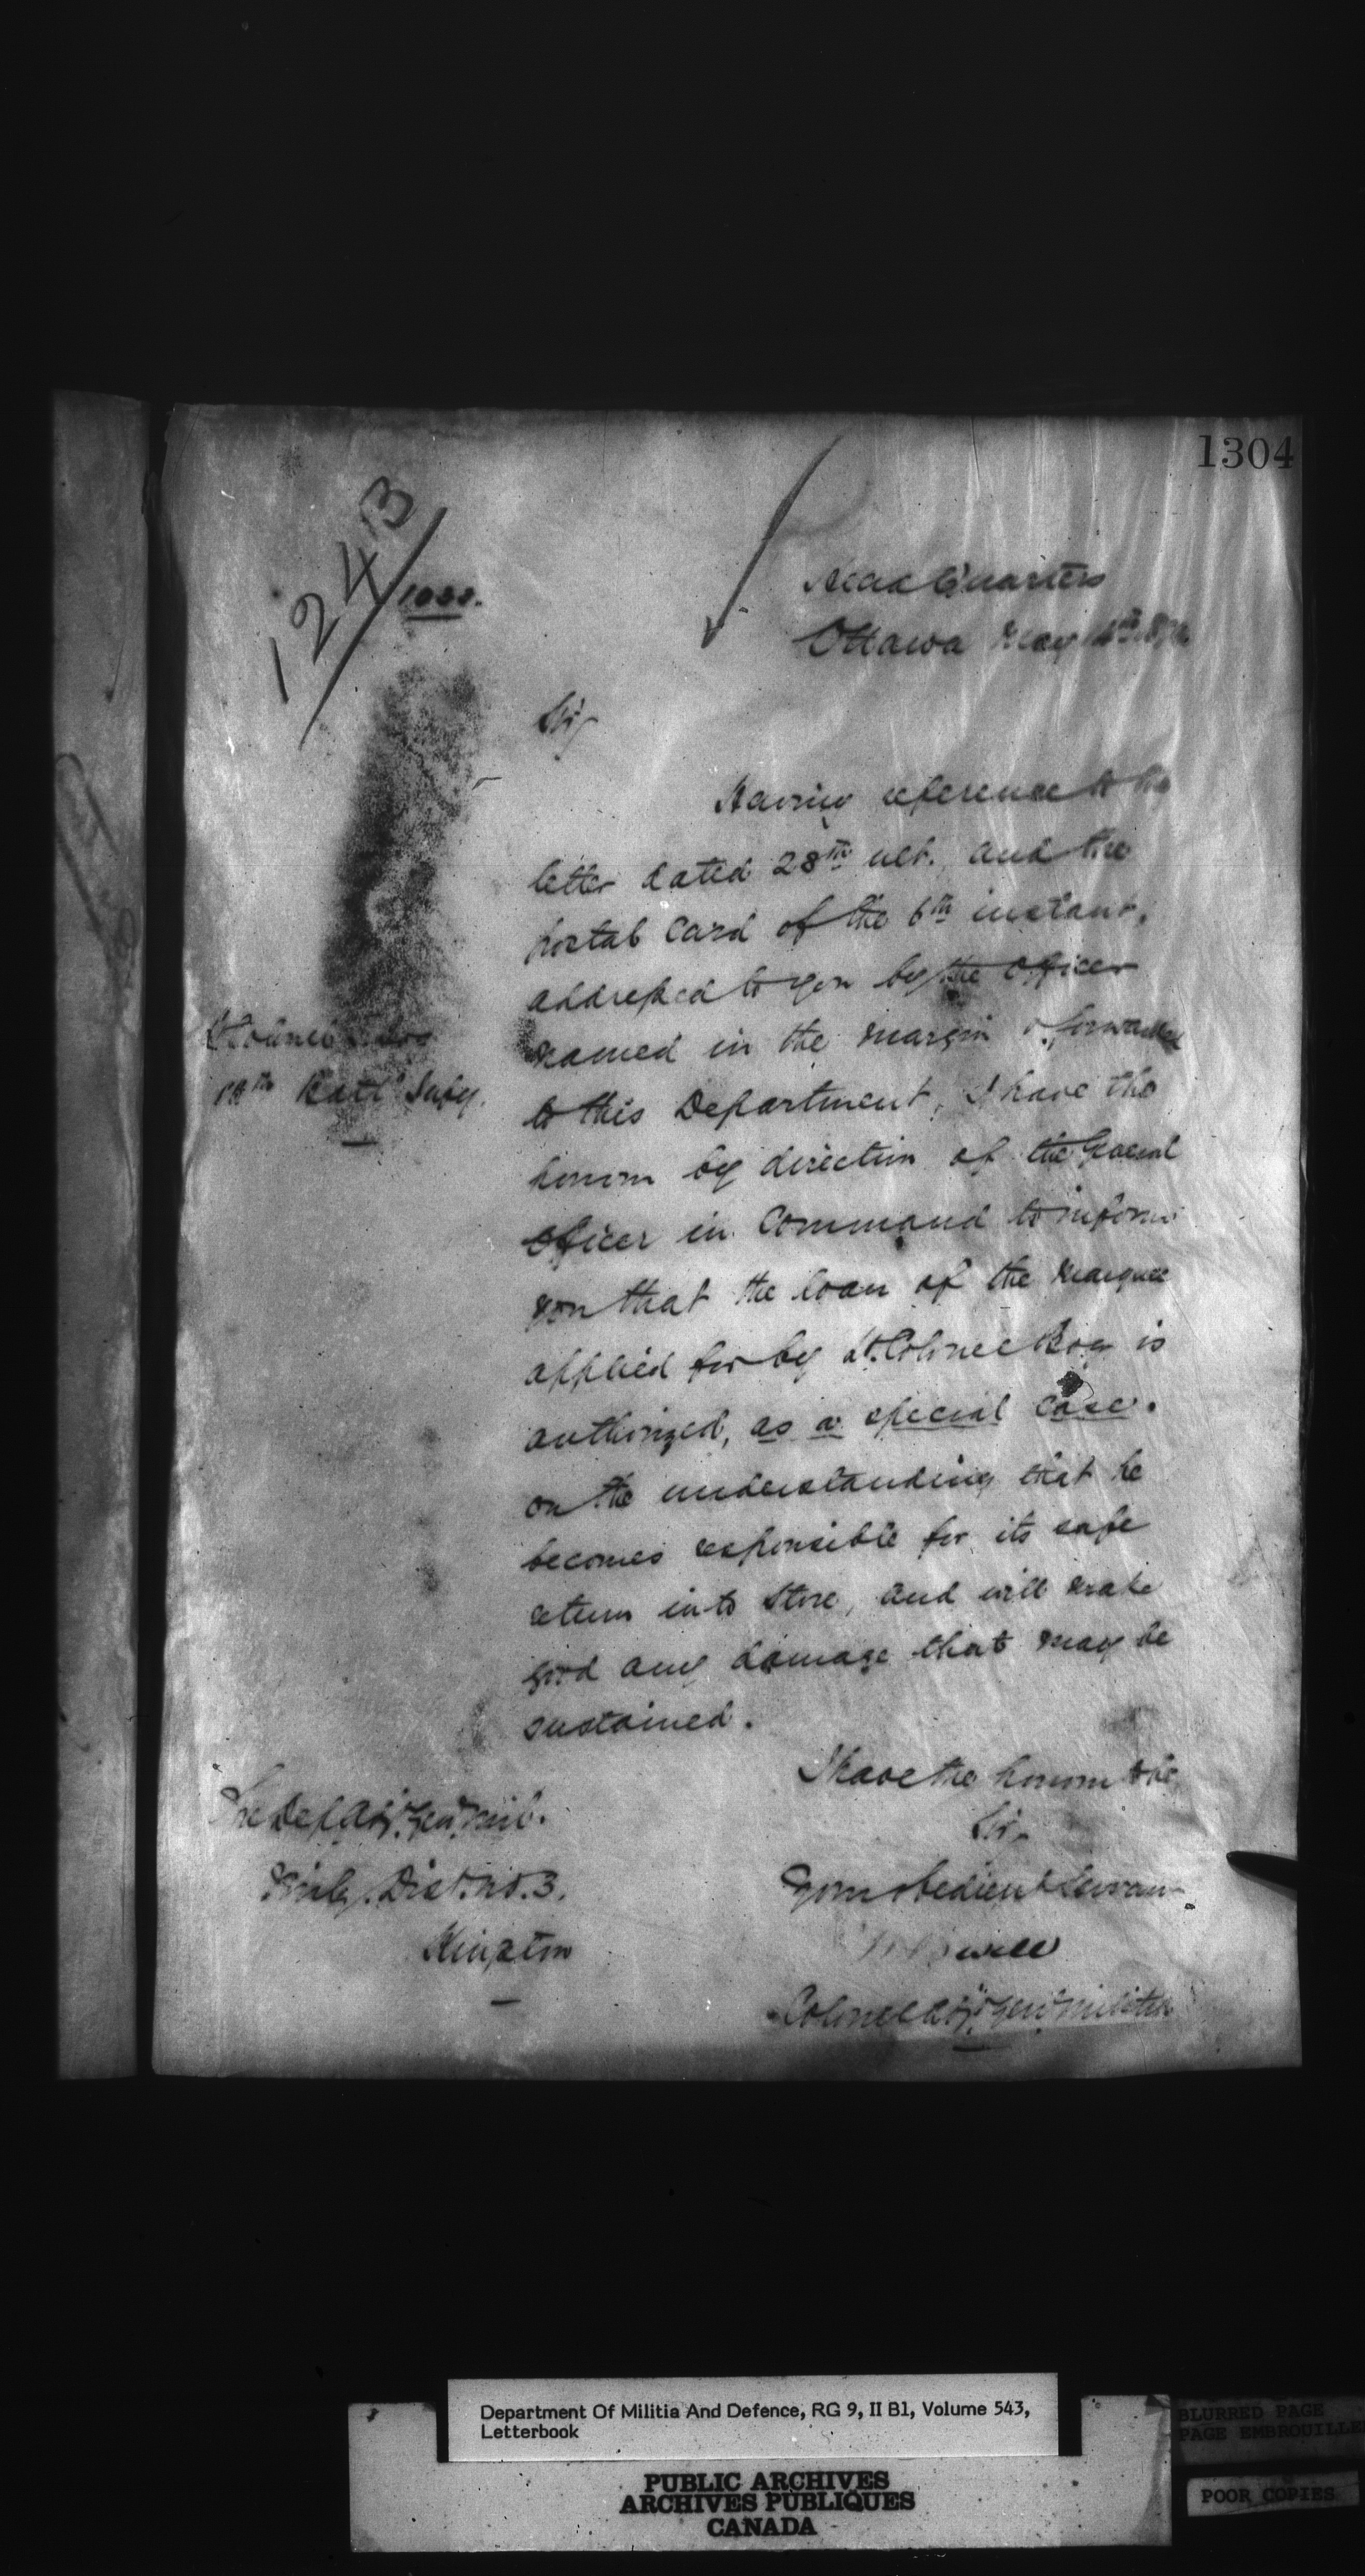 1304
1243
Head Quarters
Ottawa May
Sir
Having reference to the
letter dated 28th ult. and the
postal Card of the 6th instant,
addressed to you by the Officer
named in the margin & forwarded
to this Department, I have the
honor by direction of the General
Officer in Command to inform
you that the loan of the Marquee
applied for by Lt. Colonel is
authorized, as a special case.
on the understanding that he
becomes responsible for its safe
return into Store, and will make
good any damage that may be
sustained.
Lt Colonel
Batt Infy.
I have the honor to be
Sir
Your obedient Servant
Colonel Adjt Genl Militia
The Dep Adjt Genl Mil.
Mily. Dist. No. 3.
Kingston
Department Of Militia And Defence, RG 9, II B1, Volume 543,
Letterbook
PUBLIC ARCHIVES
ARCHIVES PUBLIQUES
CANADA
BLURRED PAGE
PAGE EMBROUILLE
POOR COPIES